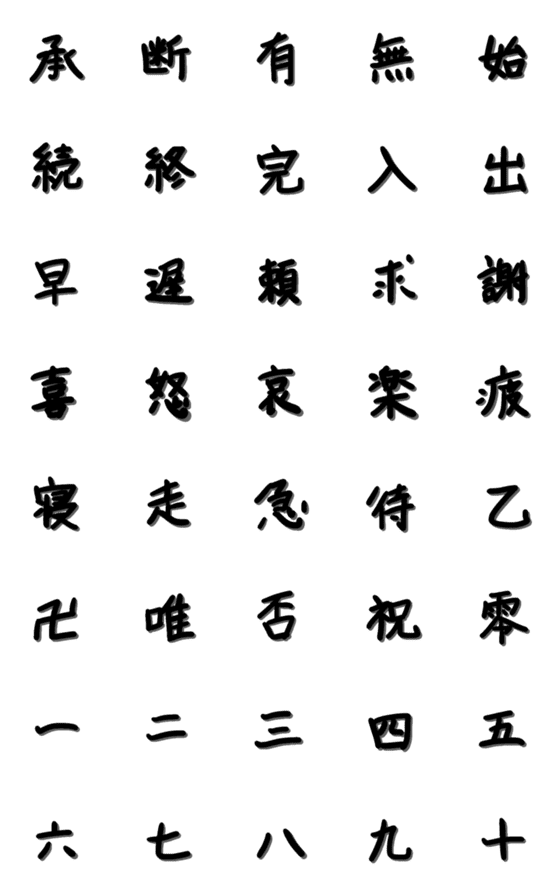 承 断 有 無 始
続 終 完 入 出
早 遅 頼 求 謝
喜 怒 哀 楽 疲
寝 走 急 待 乙
卍 唯 否 祝 零
一 二 三 四 五
六 七 八 九 十